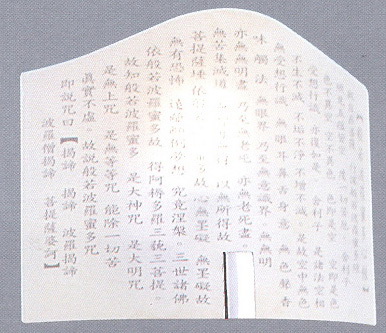 舍利子
受想行識 亦復如是 舍利子 是諸法空相
不生不滅 不垢不淨 不增不減。是故空中無色
無受想行識 無眼耳鼻舌身意 無色聲香
味觸法 無眼界 乃至無意識界 無無明
亦無無明盡 乃至無老死 亦無老死盡。
無苦集滅道 以無所得故
菩提薩埵依般若 多故 心無罣礙 無罣礙故
無有恐怖 遠離顛倒夢想 究竟涅槃。三世諸佛
依般若波羅蜜多故 得阿耨多羅三藐三菩提。
故知般若波羅蜜多 是大神咒 是大明咒
是無上咒 是無等等咒 能除一切苦
真實不虛。故說般若波羅蜜多咒
即說咒曰【揭諦 揭諦 波羅揭諦
波羅僧揭諦 菩提薩婆訶】